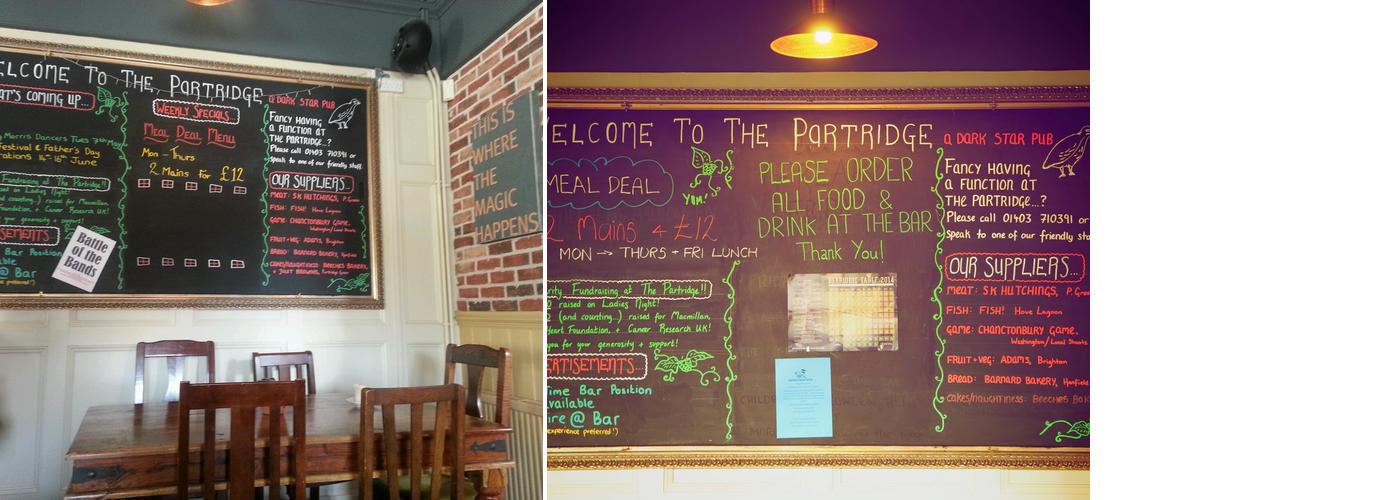 ELCOME TO THE PARTRIDGE
AT'S COMING UP...
Morris Dancers Tues 7th May
Festival & Father's Day
rations 14th - 16th June
Fundraising at The Partridge!!
raised on Ladies Night!
and counting...) raised for Macmillan,
Foundation, + Cancer Research UK!
your generosity + support!
ISEMENTS...
Bar Position
able
@ Bar
Battle
of the
Bands
WEEKLY SPECIALS...
MEAL DEAL MENU
Mon - Thurs
2 Mains for £12
a DARK STAR PUB
FANCY HAVING
a FUNCTION AT
THE PARTRIDGE...?
Please call 01403 710391 or
speak to one of our friendly staff
OUR SUPPLIERS...
MEAT: SK HUTCHINGS, P. Green
FISH: FISH! Hove Lagoon
GAME: CHANCTONBURY GAME,
Washington/Local Shoots
FRUIT+VEG: ADAMS, Brighton
BREAD: BARNARD BAKERY, Henfield
CAKES/NAUGHTINESS: BEECHES BAKERY,
THIS IS
WHERE
THE
MAGIC
HAPPENS
ELCOME TO THE PARTRIDGE
MEAL DEAL
YUM!
2 Mains 4 £12
MON → THURS + FRI LUNCH
rity Fundraising at The Partridge!!
0 raised on Ladies Night!
(and counting...) raised for Macmillan,
Heart Foundation, + Cancer Research UK!
you for your generosity + support!
ERTISEMENTS...
Time Bar Position
vailable
ire @ Bar
experience preferred!)
PLEASE ORDER
ALL FOOD &
DRINK AT THE BAR
Thank You!
TABLE 2014
a DARK STAR PUB
FANCY HAVING
a FUNCTION AT
THE PARTRIDGE...?
Please call 01403 710391 or
speak to one of our friendly sta
OUR SUPPLIERS...
MEAT: SK HUTCHINGS, P. Gree
FISH: FISH! Hove Lagoon
GAME: CHANCTONBURY GAME,
Washington/Local Shoots
FRUIT+VEG: ADAMS, Brighton
BREAD: BARNARD BAKERY, Henfield
cakes/naughtiness: BEECHES BAK